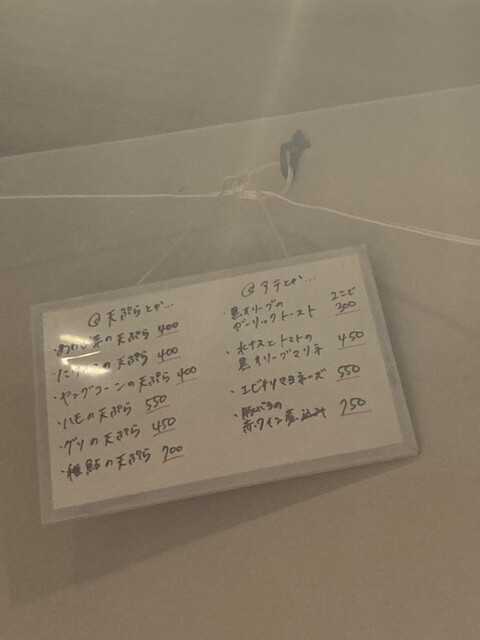 @天ぷらとか…
の天ぷら 400
の天ぷら 400
・ヤングコーンの天ぷら 400
・ハモの天ぷら 550
・ゲソの天ぷら 450
・稚鮎の天ぷら 700
@アテとか…
・黒オリーブの
ガーリックトースト 2コで 300
・水ナスとトマトの
黒オリーブマリネ 450
・エビチリマヨネーズ 550
・豚バラの
赤ワイン煮込み 750